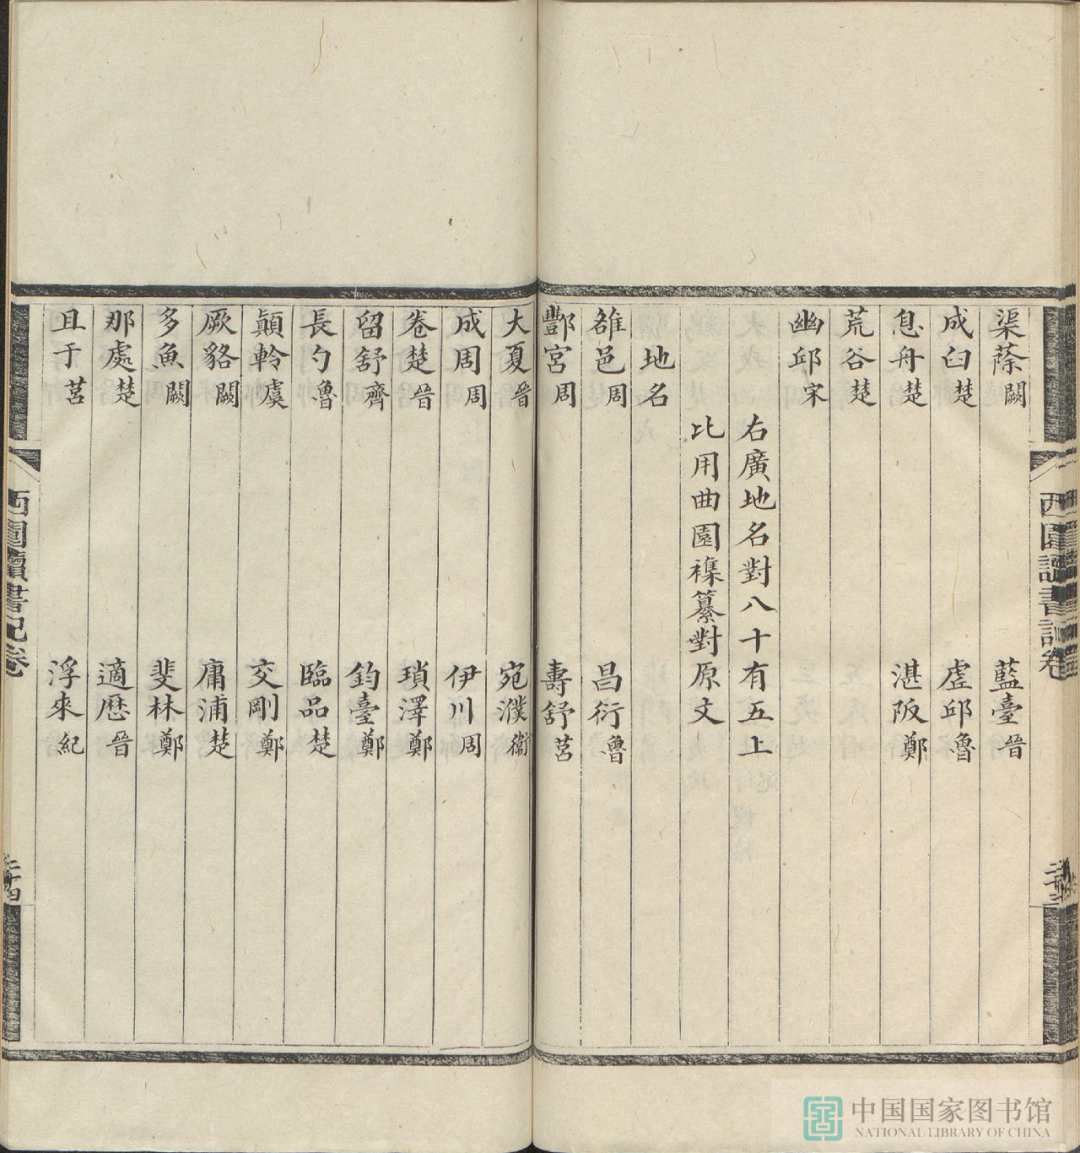 渠蒢闕 藍臺晉
成臼楚 虛邱魯
息舟楚 湛阪鄭
荒谷楚
幽邱宋
右廣地名對八十有五上
比用曲園襍纂對原文
地名
雒邑周 昌衍魯
酆宮周 壽舒莒
大夏晉 宛濮衞
成周周 伊川周
卷楚晉 瑣澤鄭
留舒齊 鈞臺鄭
長勺魯 臨品楚
顚軨虞 交剛鄭
厥貉闕 庸浦楚
多魚闕 斐林鄭
那處楚 適歷晉
且于莒 浮來紀
西園讀書記卷
二十三
西園讀書記卷
二十四
中国国家图书馆
NATIONAL LIBRARY OF CHINA